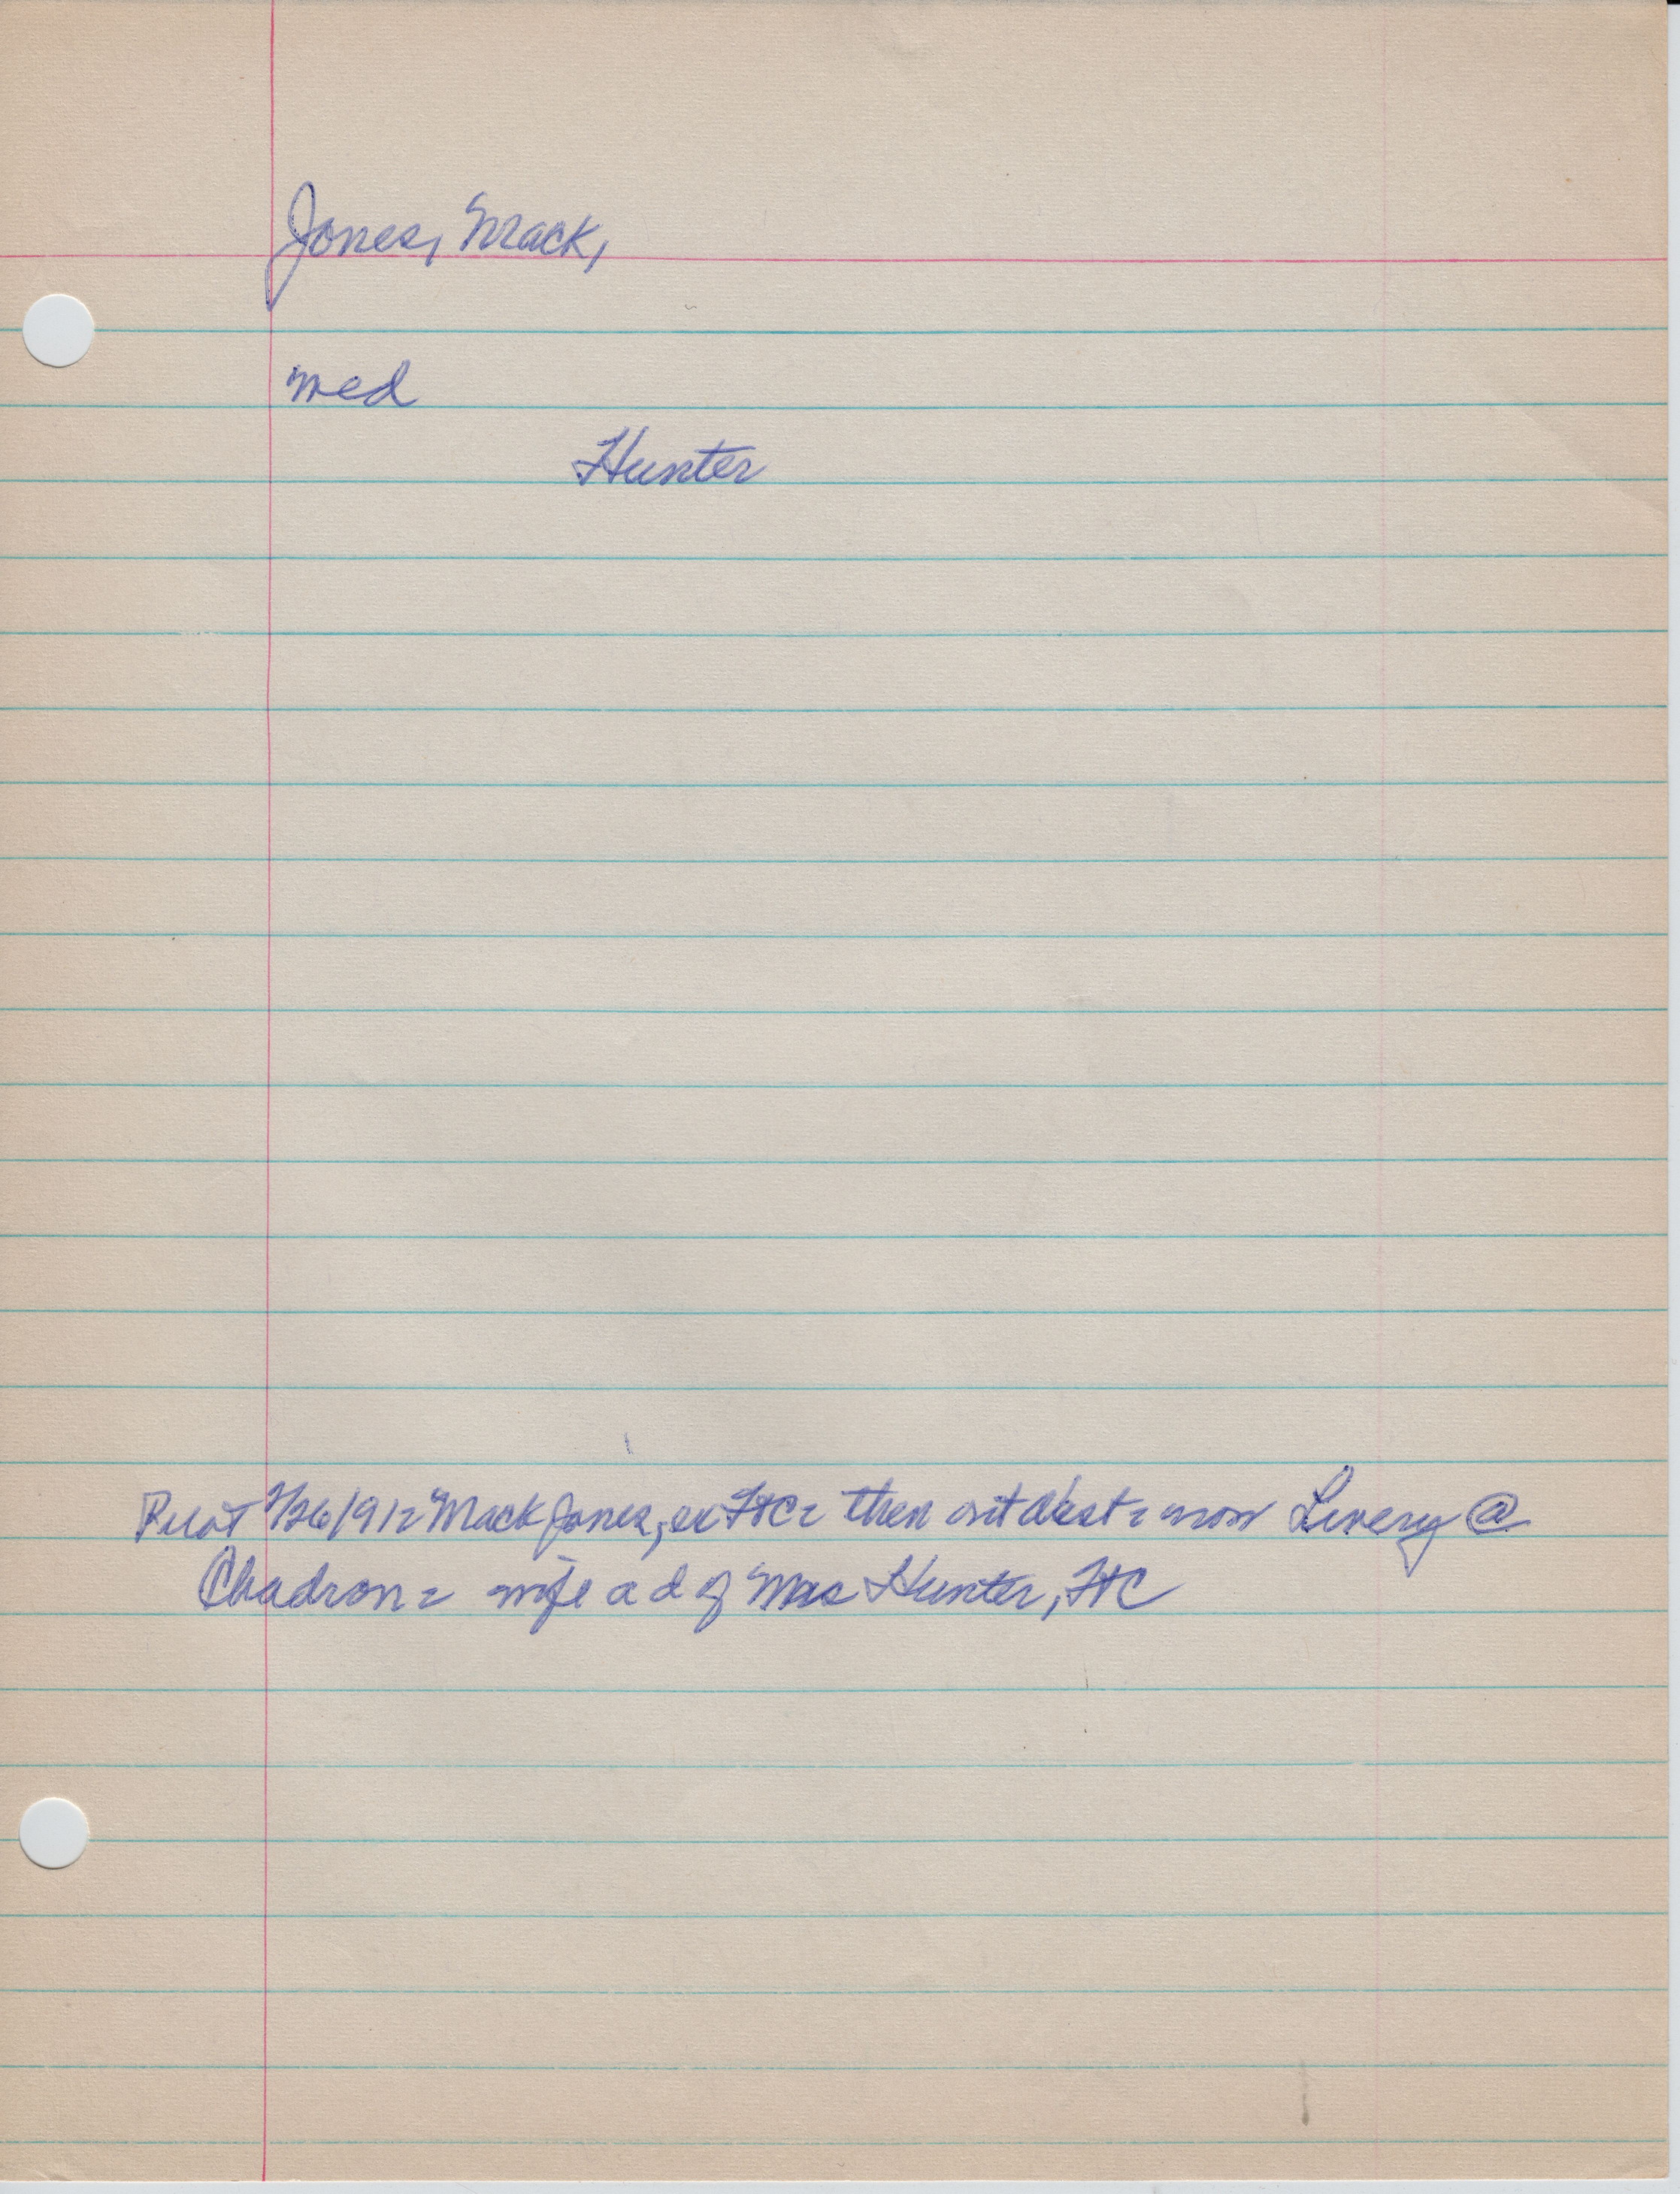 Jones, Mack,
med
Hunter
9/26/912 Mack Jones, ex FtC = then out West = now Livery @
Chadron = wife a d of Mrs Hunter, FtC